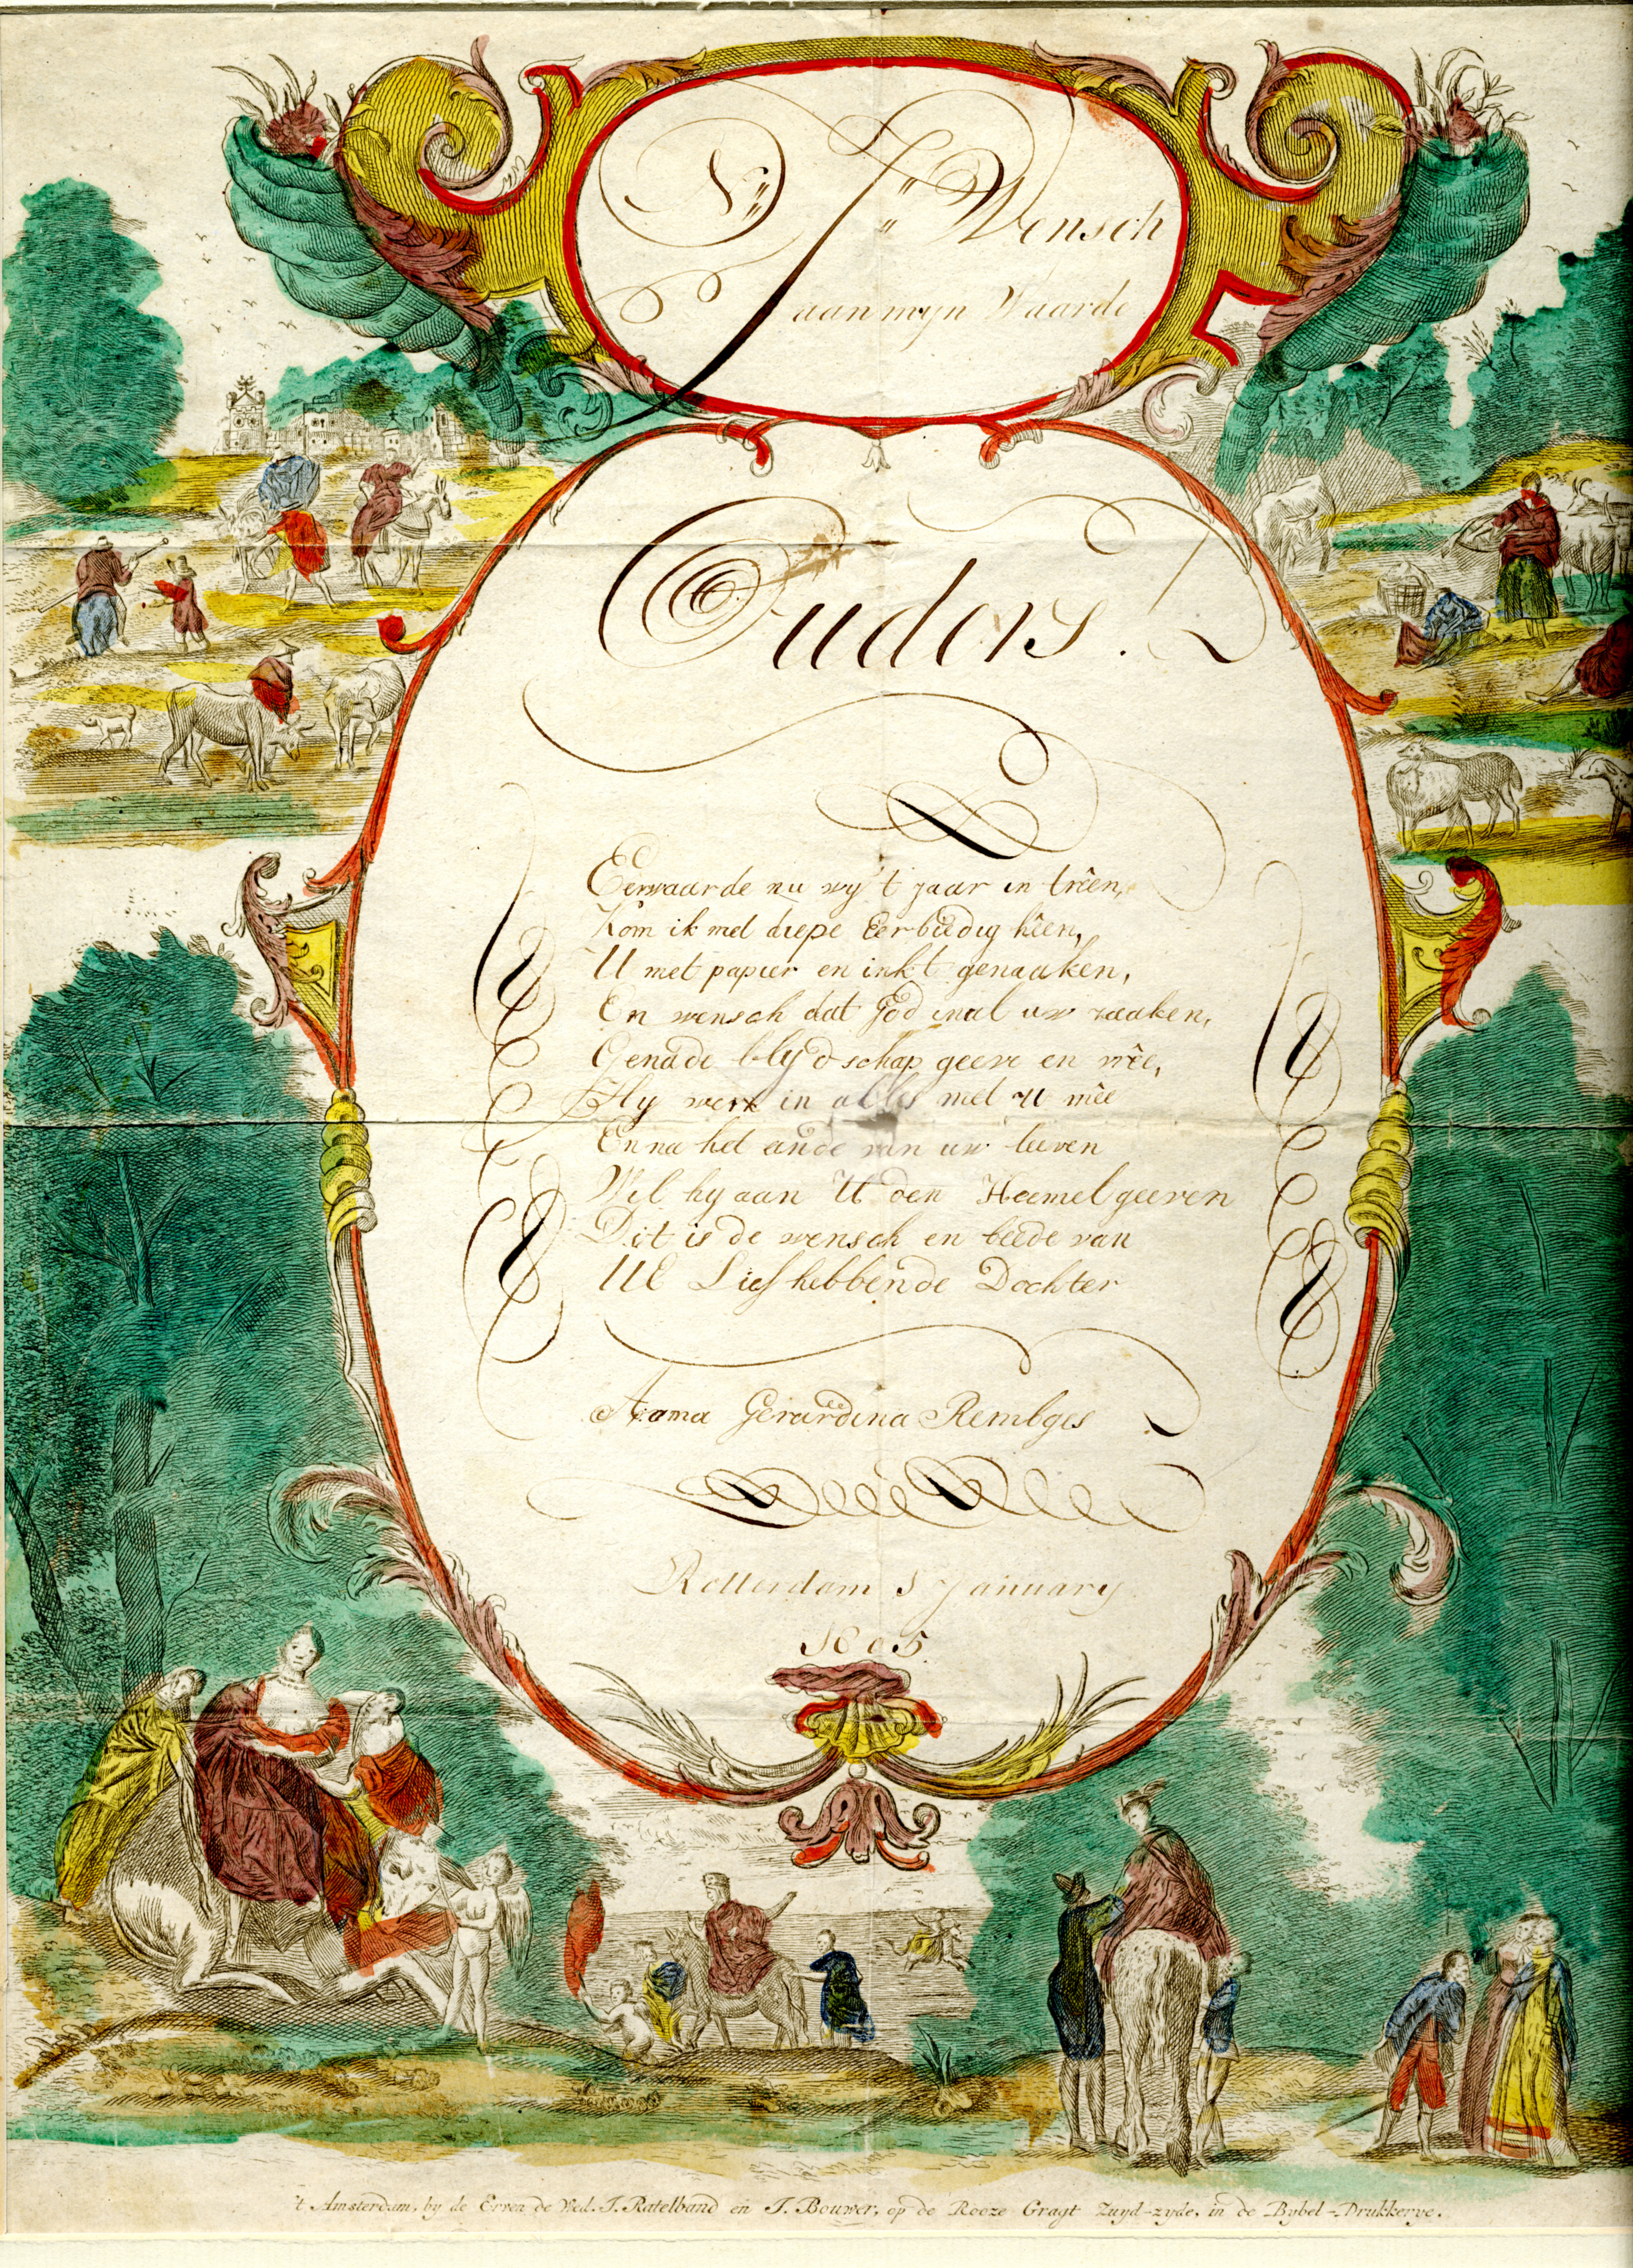 N:: J:: Wensch
aan myn Waarde
Ouders.
Eerwaarde nu wy't jaar in trêen,
Kom ik met diepe Eerbiedig hêen,
U met papier en inkt genaaken,
En wensch dat God in al uw zaaken,
Genade blydschap geeve en vrêe,
Hy werk in alles met U mêe
En na het einde van uw leeven
Wil hy aan U den Heemel geeven
Dit is de wensch en beede van
UE Liefhebbende Dochter
Gerardina Rembges
Rotterdam 1 January
1805.
't Amsterdam, by de Erven de Wed. J. Ratelband en J. Bouwer, op de Rooze Gragt Zuyd-zyde, in de Bybel-Drukkerye.